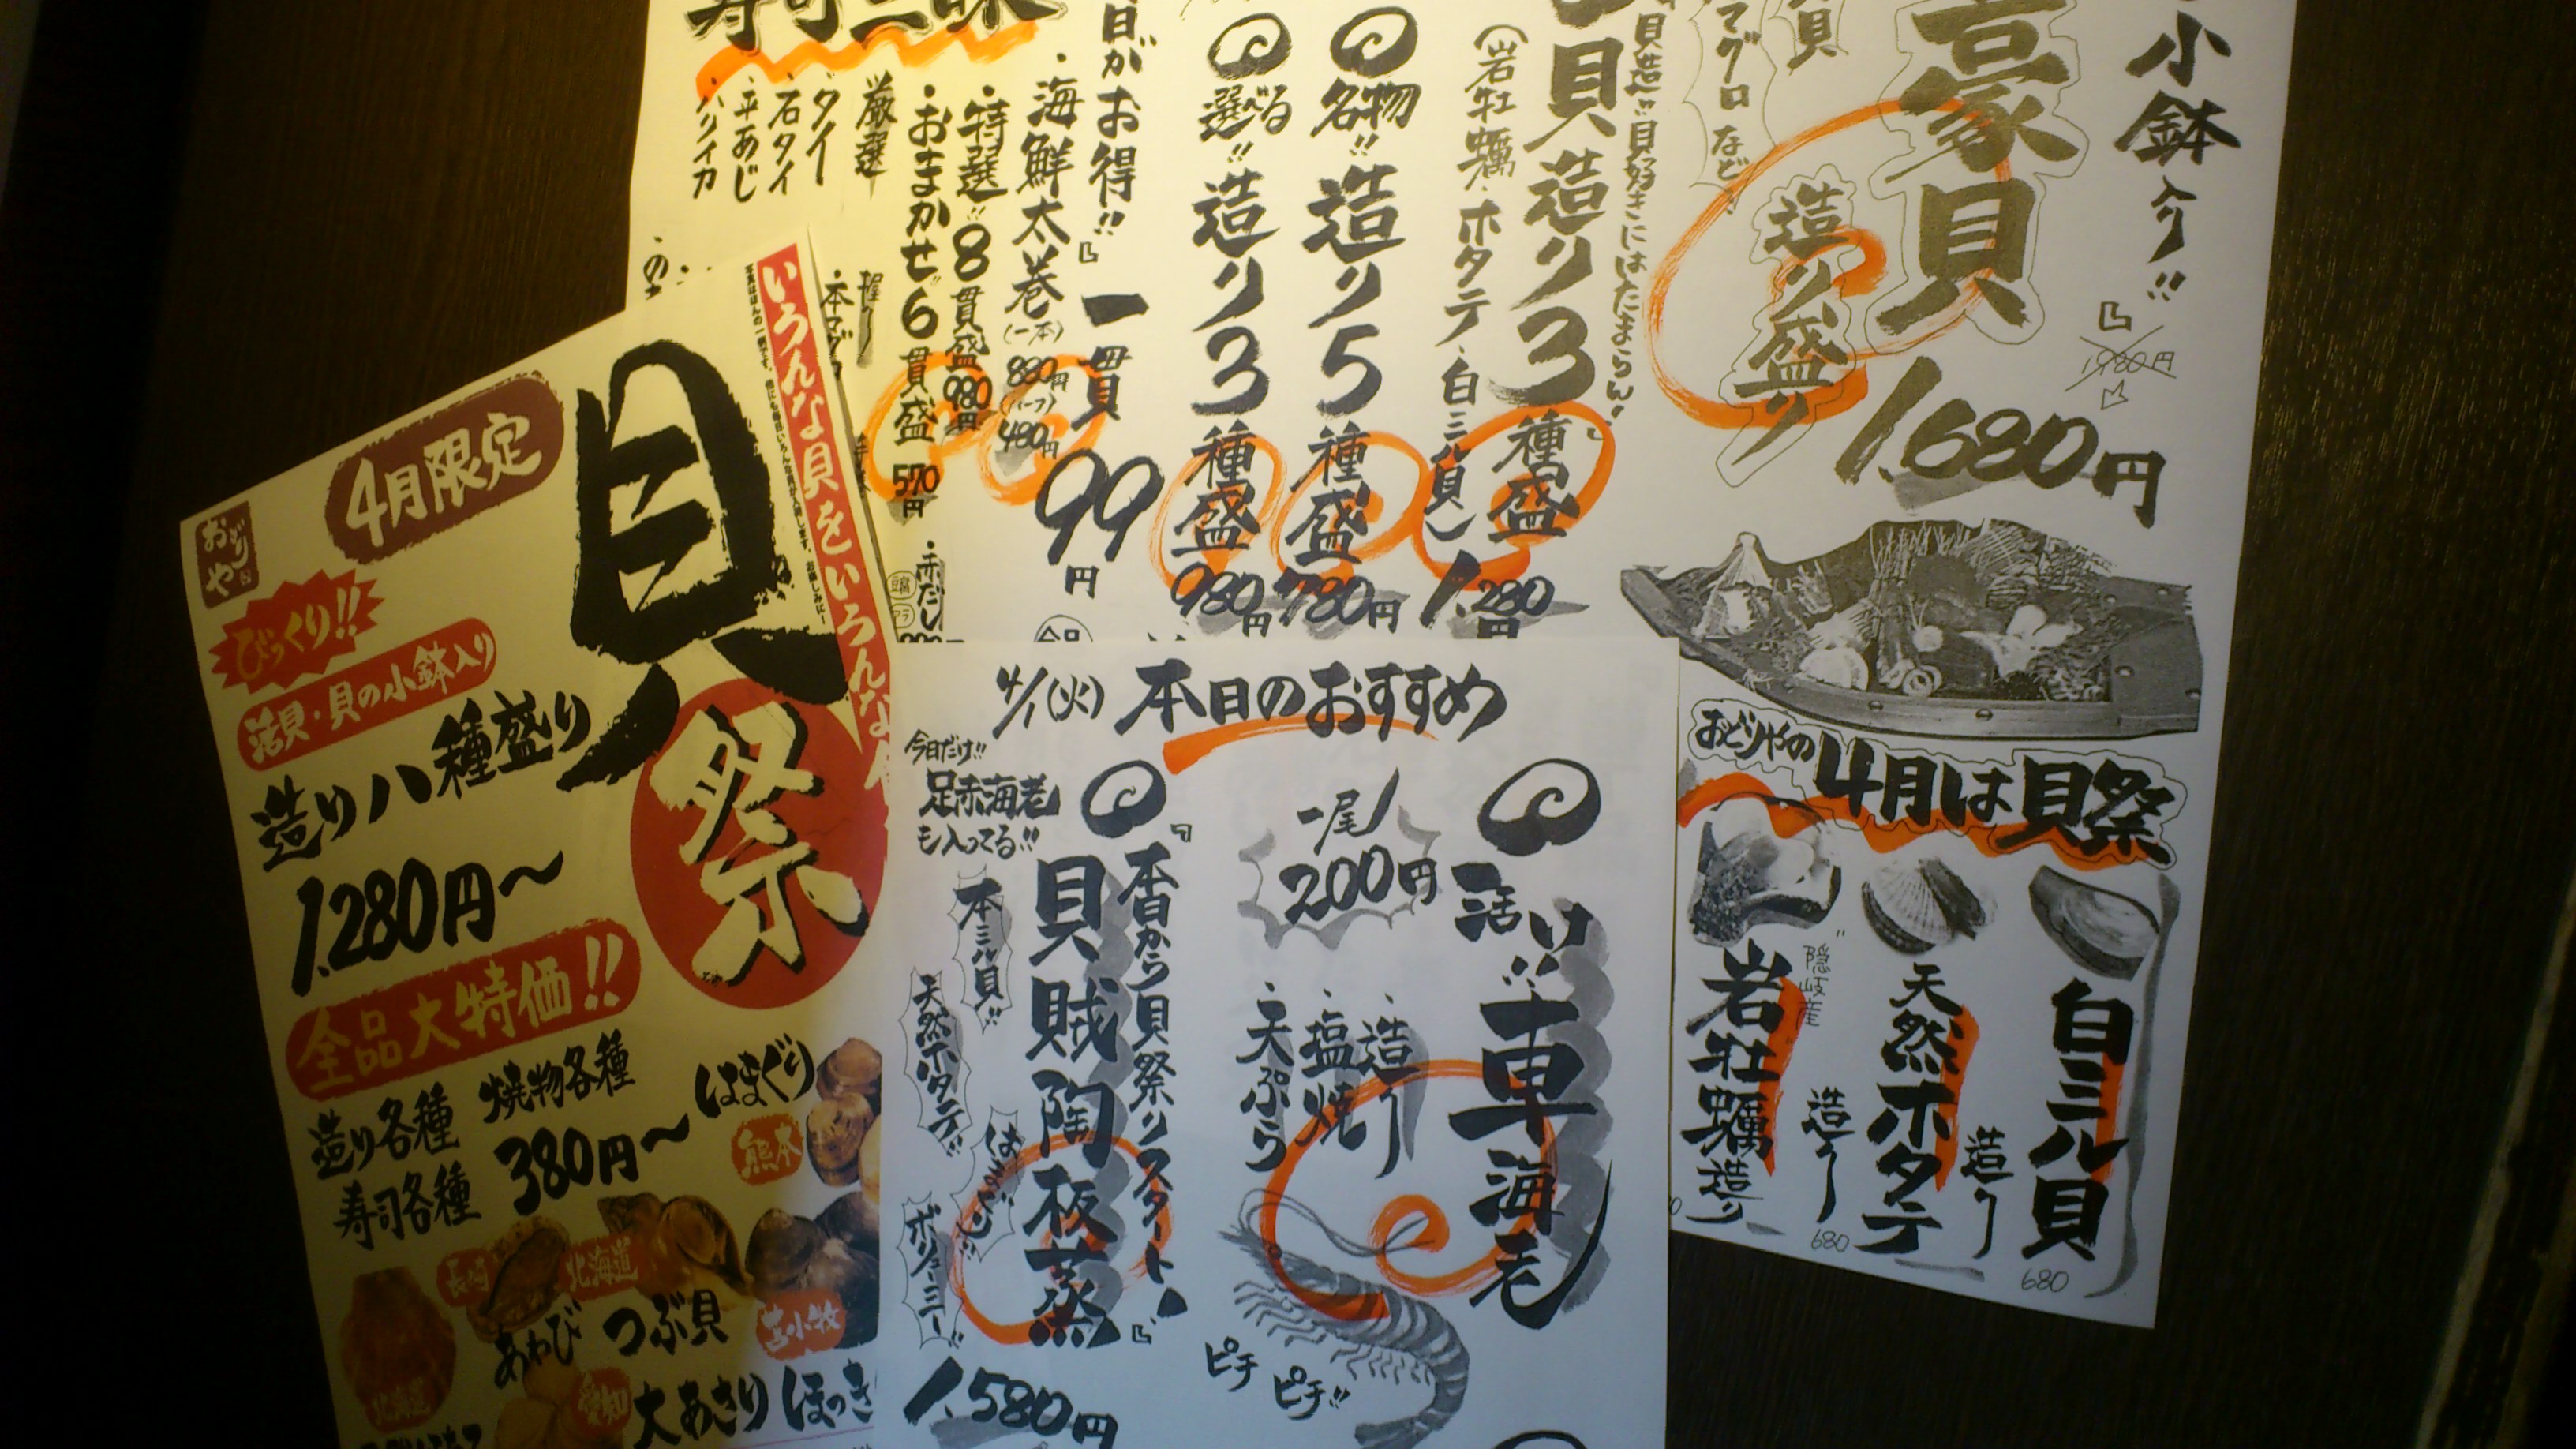 小鉢入り!!
1,980円
豪貝
造り盛り
1,680円
マグロ など
"貝造"貝好きにはたまらん!
貝造り3種盛
(岩牡蠣・ホタテ・白ミル貝)
1,280円
名物!!造り5種盛
780円
選べる!!造り3種盛
980円
日がお得!!
一貫99円
・海鮮太巻(一本)880円(ハーフ)480円
・特選!!8貫盛980円
・おまかせ6貫盛570円
赤だし
厳選
寿司三昧
・タイ
・石タイ
・平あじ
・ハリイカ
おどりやの4月は貝祭
白ミル貝
造り
680
天然ホタテ
造り
680
"隠岐産
岩牡蠣造り
4/1(火)本日のおすすめ
活け!!車海老
一尾200円
・造り
・塩焼
・天ぷら
ピチピチ!!
今日だけ!!
足赤海老
も入ってる!!
本日から貝祭りスタート!
貝賊陶板蒸
本ミル貝!!
天然ホタテ!!
はまぐり!!
ボリューミー!!
1,580円
いろんな貝をいろんな
おどりや
4月限定
貝祭
びっくり!!
活貝・貝の小鉢入り
造り八種盛り
1,280円〜
全品大特価!!
造り各種
焼物各種
寿司各種
380円〜
はまぐり
熊本
長崎
あわび
北海道
つぶ貝
苫小牧
ほっき
愛知
大あさり
北海道